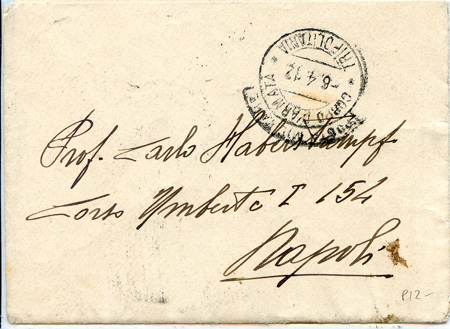 TRIPOLITANIA
-6.4.12
CORPO D'ARMATA
Prof. Carlo Haberstumpf
Corso Umberto I 154
Napoli
P12-